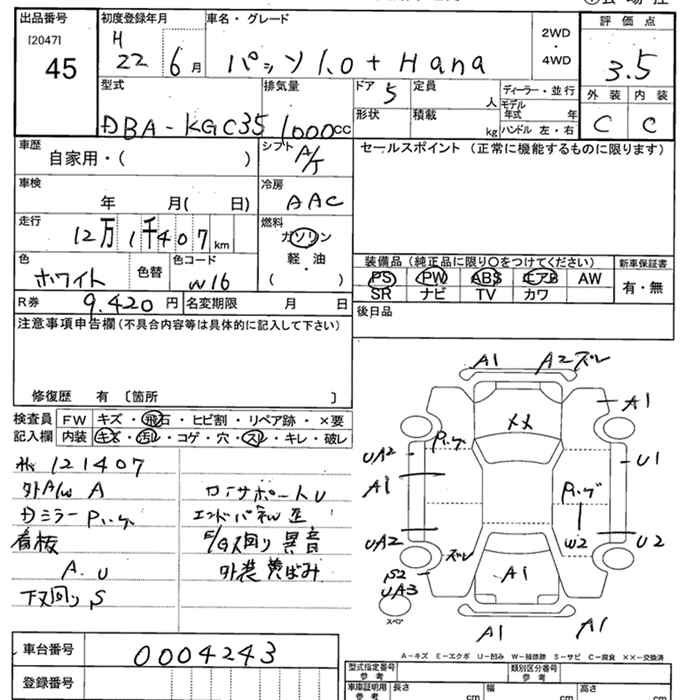 出品番号 初度登録年月 車名・グレード 評価点
[2047]
45
H
22 6月 パッソ 1.0 + Hana
2WD
・
4WD
3.5
外装 内装
C C
型式 排気量 ドア 定員 ディーラー・並行
DBA-KGC35 1000cc 5 人
モデル年式 年
形状 積載 kg ハンドル 左・右
車歴 自家用・( ) シフト A/T
セールスポイント(正常に機能するものに限ります)
車検 年 月( 日) 冷房 AAC
走行 12万1千407km 燃料 ガソリン
軽・油
( )
色 ホワイト 色替 色コード W16
装備品(純正品に限り○をつけてください) 新車保証書
PS PW ABS エアB AW 有・無
SR ナビ TV カワ
R券 9.420円 名変期限 月 日
後日品
注意事項申告欄(不具合内容等は具体的に記入して下さい)
修復歴 有 〔箇所 〕
検査員 FW キズ・飛石・ヒビ割・リペア跡・×要
記入欄 内装 キズ・汚レ・コゲ・穴・スレ・キレ・破レ
121407
外A/W A
Dミラー
看板
A.U
下又回りS
コアサポートU
異音
外装黄ばみ
A1 A2 ズレ
A1
××
UA2
A1
U1
UA2 ズレ W2 U2
S2
UA3
A1
スペア
A1 A1
A-キズ E-エクボ U-凹み W-補修跡 S-サビ C-腐食 ××-交換済
車台番号 0004243
登録番号
型式指定番号 参考 類別区分番号 参考
車庫証明用 参考 長さ cm 幅 cm 高さ cm